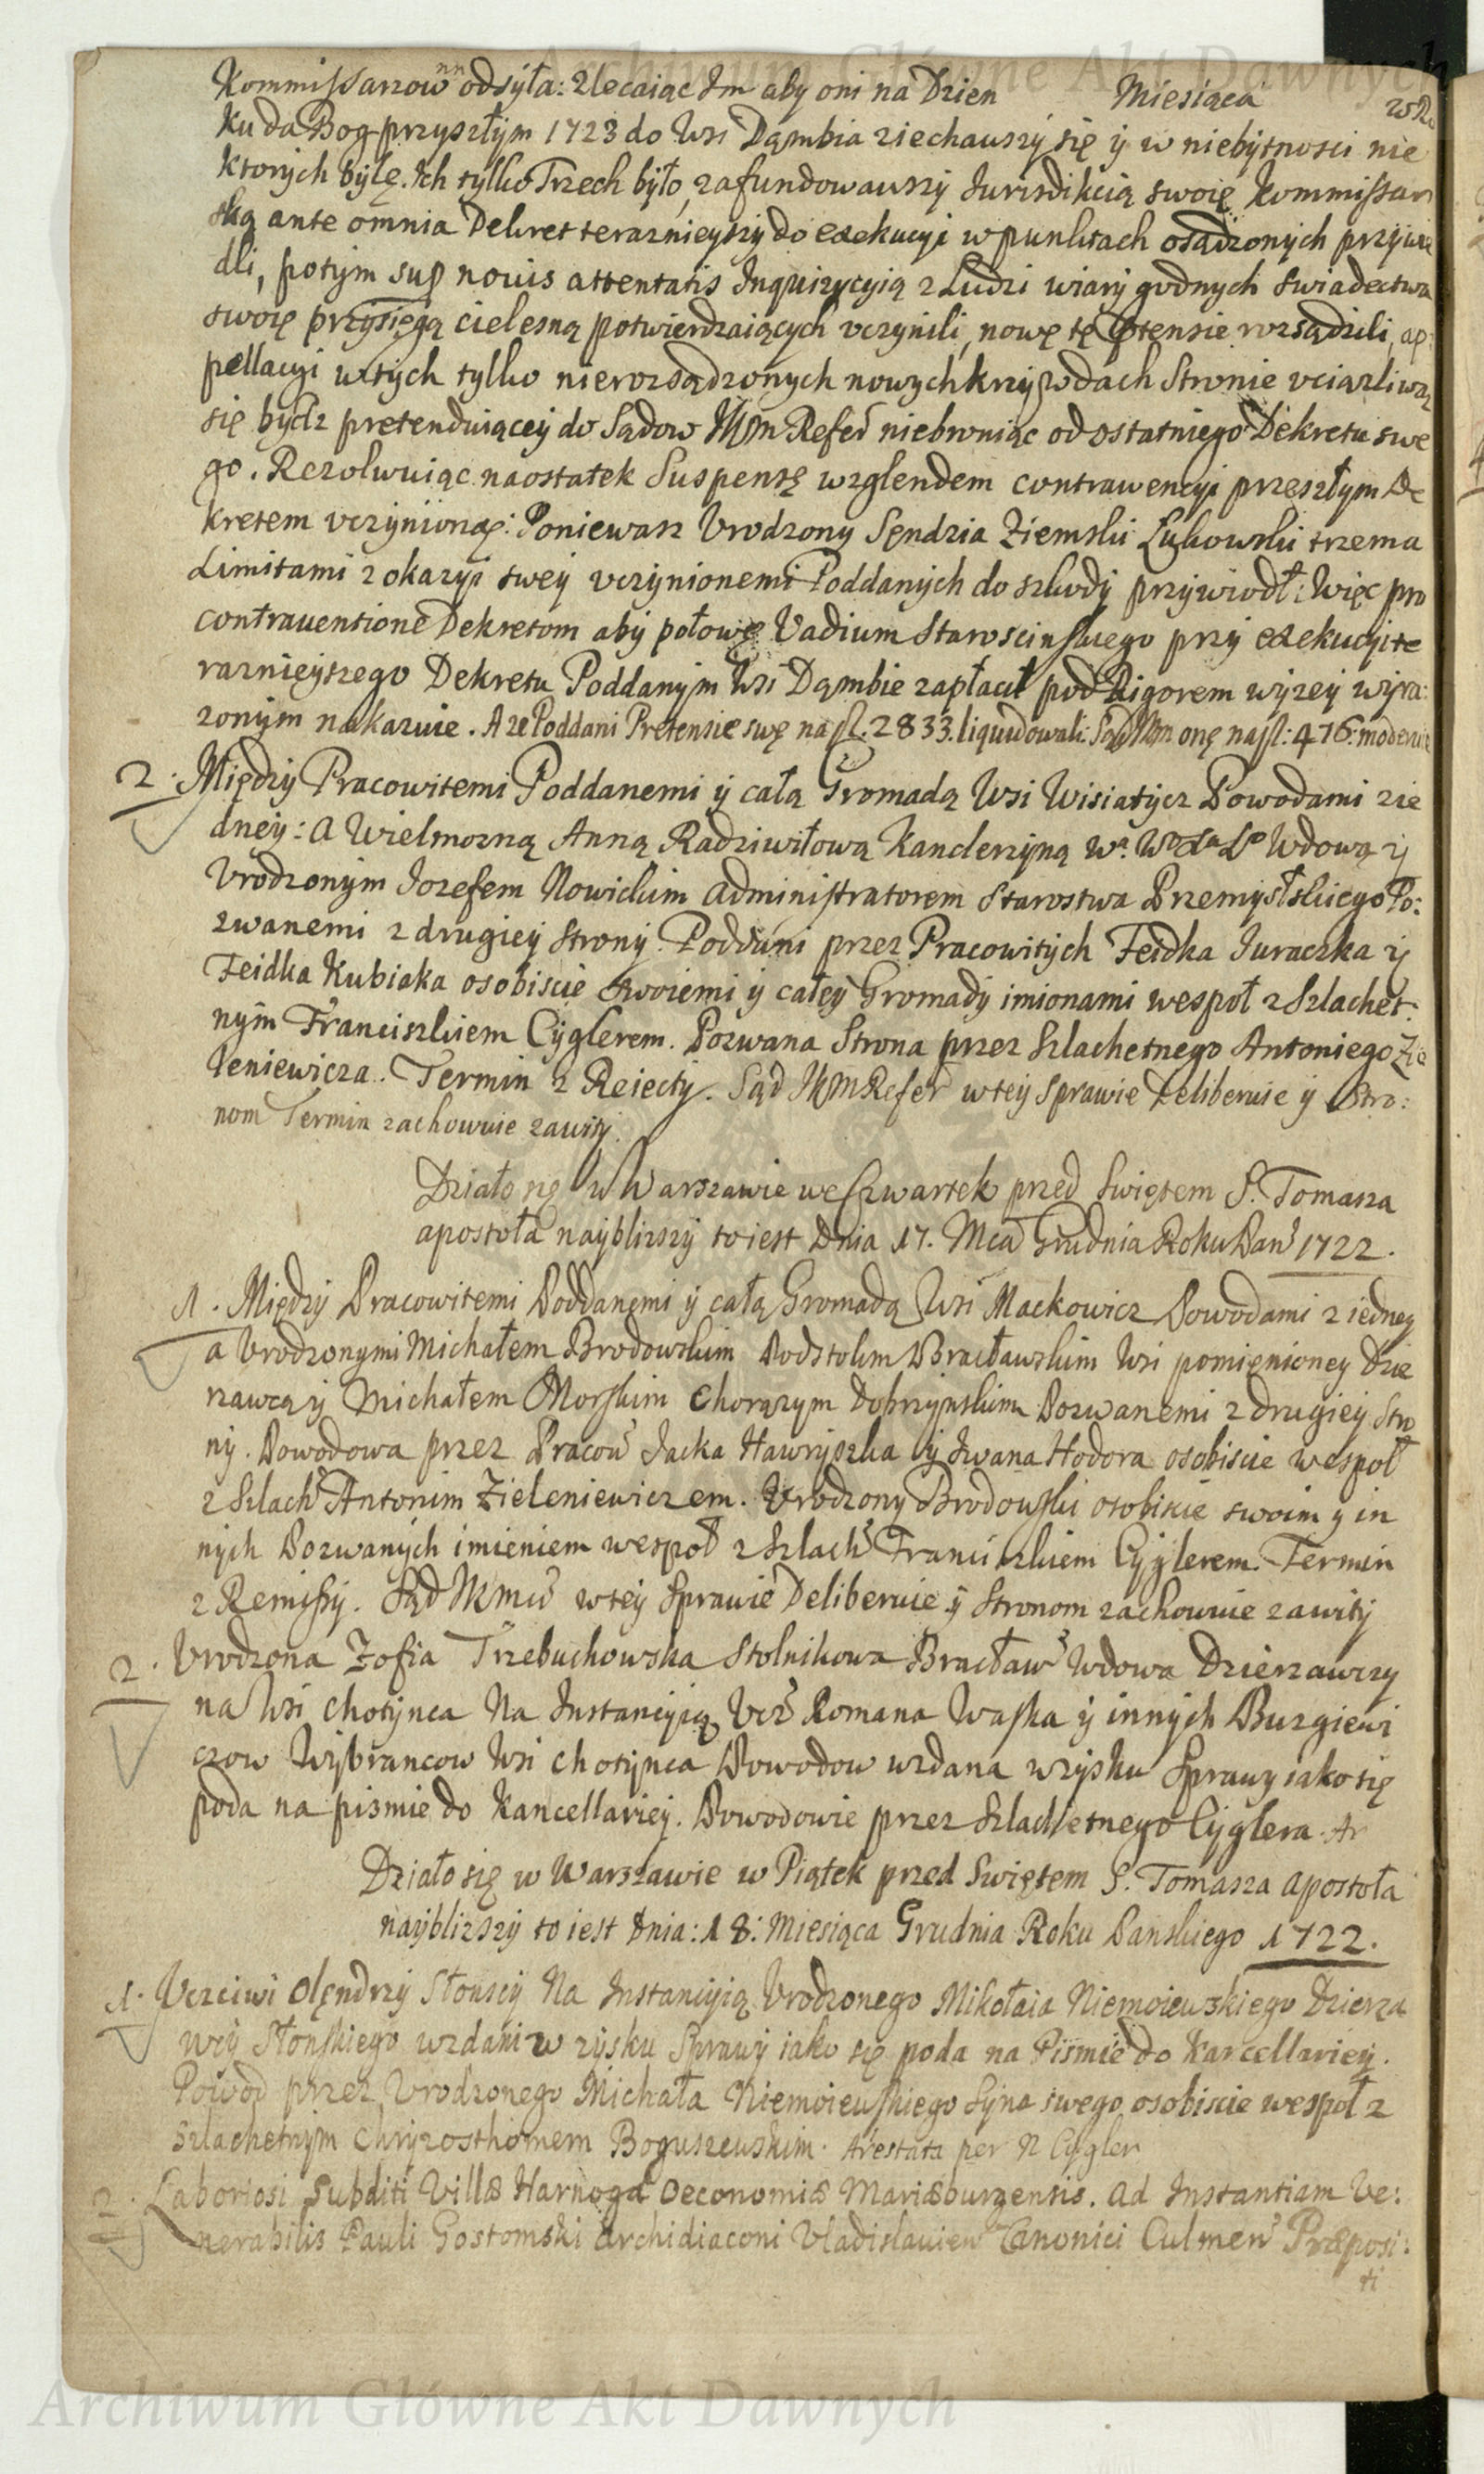 Kommissarzow nn odsyła: zlecaiąc Im aby oni na Dzien Miesiąca w Ro
ku da Bog przyszłym 1723 do Wsi Dąmbia ziechauszy się y w niebytnosci nie
ktorych bylę. Ich tylko Trzech było, zafundowauszy Iurisdikcią swoię Kommissar
ską ante omnia Dekret teraznieyszy do exekucyi w punktach osądzonych przywie
dli, potym sup novis attentatis Inquizycyią z Ludzi wiary godnych swiadectwa
swoię przysięgą cielesną potwierdzaiących vczynili, nowę tę Ptensie rozsądzili, ap:
pellacyi w tych tylko nierozsądzonych nowych krzywdach Stronie vciązliwą
się bydz pretenduiącey do Sądow JKM Refer niebroniąc od ostatniego Dekretu swe
go. Rezolwuiąc naostatek Suspensę wzglendem contrawencyi przeszłym De
kretem vczynionąę: Poniewasz Vrodzony Sęndzia Ziemski Łukowski trzema
Limitami z okazyi swey vczynionemi Poddanych do szkody przywiodł: Więc pro
contrauentione Dekretom aby połowę Vadium Staroscinskiego przy exekucyi te
raznieyszego Dekretu Poddanym Wsi Dąmbie zapłacił pod Rigorem wyzey wyra:
zonym nakazuie. A ze Poddani Pretensie swę na fl. 2833. liquidowali: Sąd JKM onę na fl: 476: moderuie
2. Między Pracowitemi Poddanemi y całą Gromadą Wsi Wisiatycz Powodami z ie
dney: a Wielmozną Anną Radziwiłową Kanclerzyną Wa. Wo Xa Lo Wdową y
Vrodzonym Iozefem Nowickim Administratorem Starostwa Przemyslskiego Po:
zwanemi z drugiey strony. Poddani przez Pracowitych Feidka Iuraczka y
Feidka Kubiaka osobiscie swoiemi y całey Gromady imionami wespoł z Szlachet:
nym Franciszkiem Cyglerem. Pozwana Strona przez Szlachetnego Antoniego Zie
leniewicza. Termin z Reiecty. Sąd JKM Refer w tey sprawie Deliberuie y Stro:
nom Termin zachowuie zawity.
Działo się w Warszawie we Czwartek przed Swiętem S. Tomasza
apostoła nayblizszy to iest Dnia 17. Mca Grudnia Roku Pan 1722.
1. Między Pracowitemi Poddanemi y całą Gromadą Wsi Mackowicz Powodami z iedney
a Vrodzonymi Michałem Brodowskim Podstolim Bracławskim Wsi pomięnioney Dzie
rzawcą y Michałem Morskim Chorązym Dobrzynskim Pozwanemi z drugiey stro
ny. Powodowa przez Pracow Jacka Hawryszka y Jwana Hodora osobiscie wespoł
z Szlach Antonim Zieleniewiczem. Vrodzony Brodowski osobiscie swoim y in
nych Pozwanych imieniem wespoł z Szlach Franciszkiem Cyglerem. Termin
z Remissy. Sąd JKMci w tey Sprawie Deliberuie y Stronom zachowuie zawity
2. Vrodzona Zofia Trzebuchowska Stolnikowa Bracław Wdowa Dzierzawczy
na Wsi Chotynca Na Instancyią Vcz Romana Waska y innych Burgiewi
czow Wybrancow Wsi Chotynca Powodow wzdana w zysku Sprawy iako się
poda na pismie do Kancellariey. Powodowie przez Szlachetnego Cyglera. Ar
Działo się w Warszawie w Piątek przed Swiętem S. Tomasza Apostoła
nayblizszy to iest Dnia: 18: Miesiąca Grudnia Roku Panskiego 1722.
1. Vczciwi Olęndrzy Słonscy Na Instancyią Vrodzonego Mikołaia Niemoiewskiego Dzierza
wcy Słonskiego wzdani w zysku Sprawy iako się poda na Pismie do Kancellariey.
Powod przez Vrodzonego Michała Niemoiewskiego Syna swego osobiscie wespoł z
Szlachetnym Chryzosthomem Boguszewskim. Arestata per N Cygler
2. Laboriosi Subditi Villæ Harnoga Oeconomiæ Mariæburgensis. Ad Instantiam Ve:
nerabilis Pauli Gostomski Archidiaconi Vladislauien Canonici Culmen Præposi:
ti
Archiwum Główne Akt Dawnych